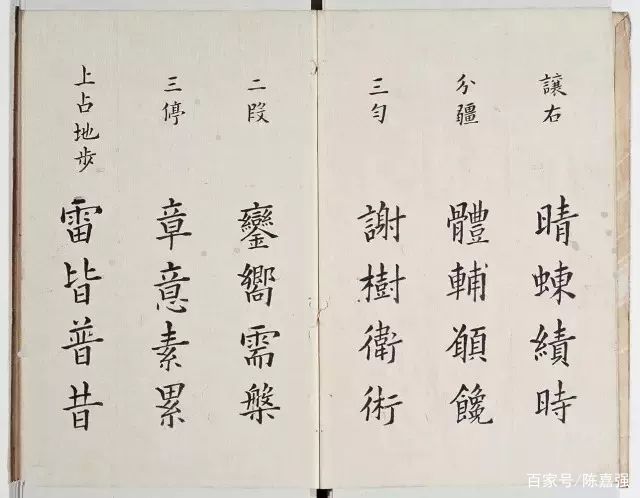 讓右
晴蝀績時
分疆
體輔願饞
三勻
謝樹衛術
二段
鑾嚮需槃
三停
章意素累
上占地步
雷皆普昔
百家号/陈嘉强